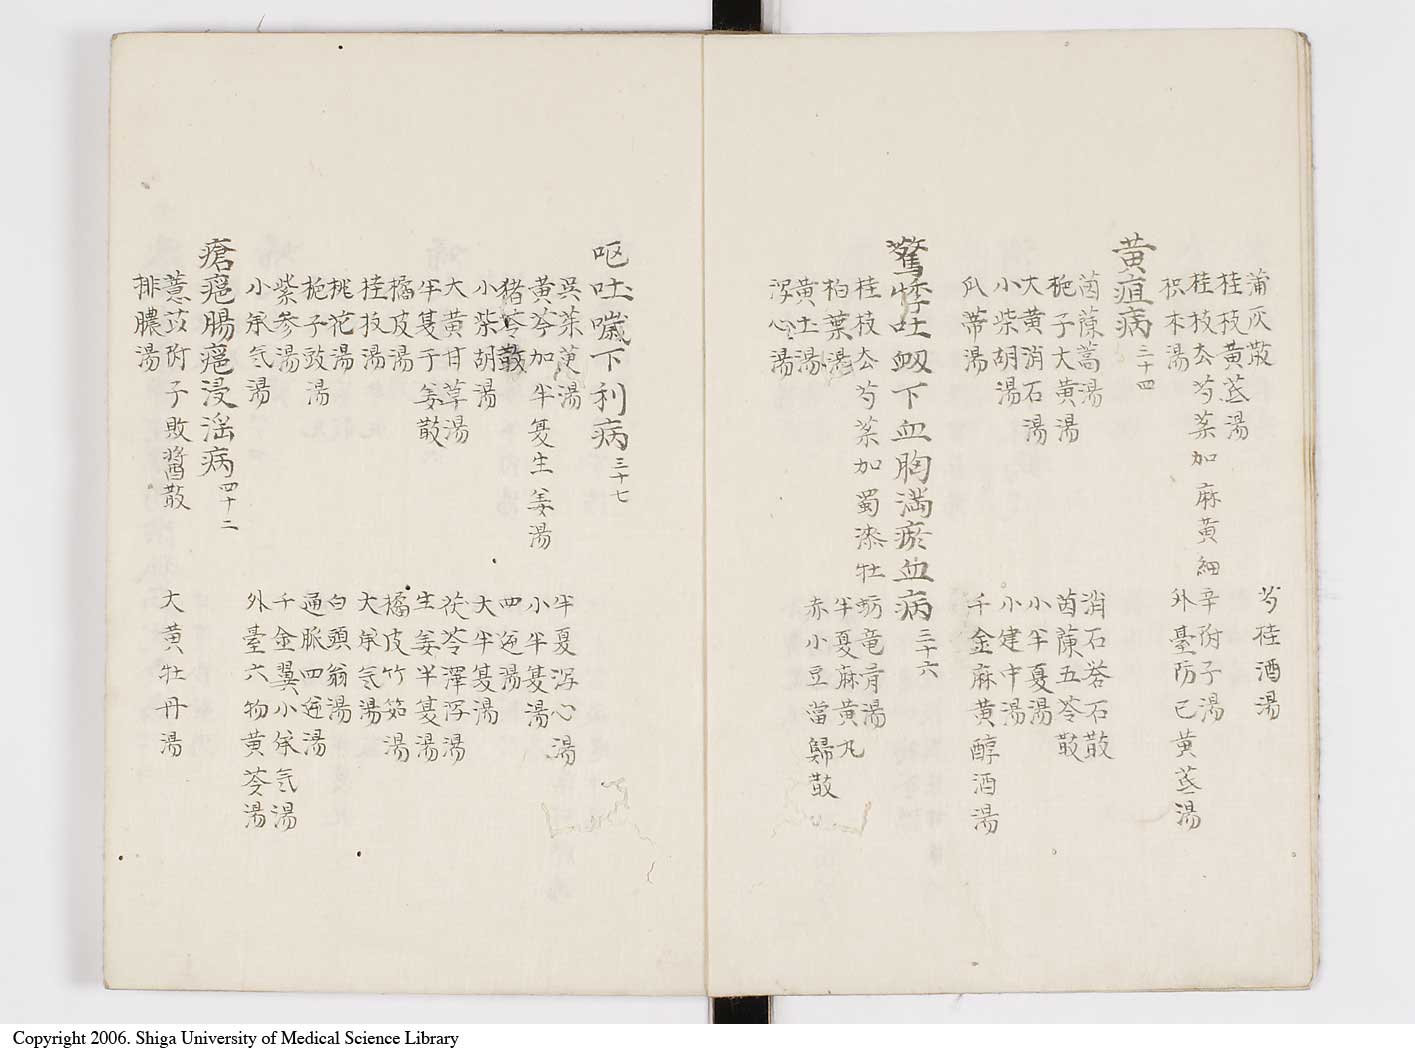 蒲灰散
芍桂酒湯
桂枝黄芪湯
桂枝去芍薬加麻黄細辛附子湯
枳朮湯
外臺防已黄芪湯
黄疸病三十四
茵蔯蒿湯
消石礬石散
梔子大黄湯
茵蔯五苓散
大黄消石湯
小半夏湯
小柴胡湯
小建中湯
瓜蒂湯
千金麻黄醇酒湯
驚悸吐衂下血胸満瘀血病三十六
桂枝去芍薬加蜀漆牡蛎竜骨湯
柏葉湯
半夏麻黄丸
黄土湯
赤小豆當歸散
瀉心湯
呕吐噦下利病三十七
呉茱萸湯
半夏瀉心湯
黄芩加半夏生姜湯
小半夏湯
猪苓散
四逆湯
小柴胡湯
大半夏湯
大黄甘草湯
茯苓澤瀉湯
半夏干姜散
生姜半夏湯
橘皮湯
橘皮竹茹湯
桂枝湯
大承気湯
桃花湯
白頭翁湯
梔子豉湯
通脈四逆湯
紫参湯
千金翼小承気湯
小承气湯
外臺六物黄芩湯
瘡癰腸癰浸淫病四十二
薏苡附子敗醤散
大黄牡丹湯
排膿湯
Copyright 2006. Shiga University of Medical Science Library